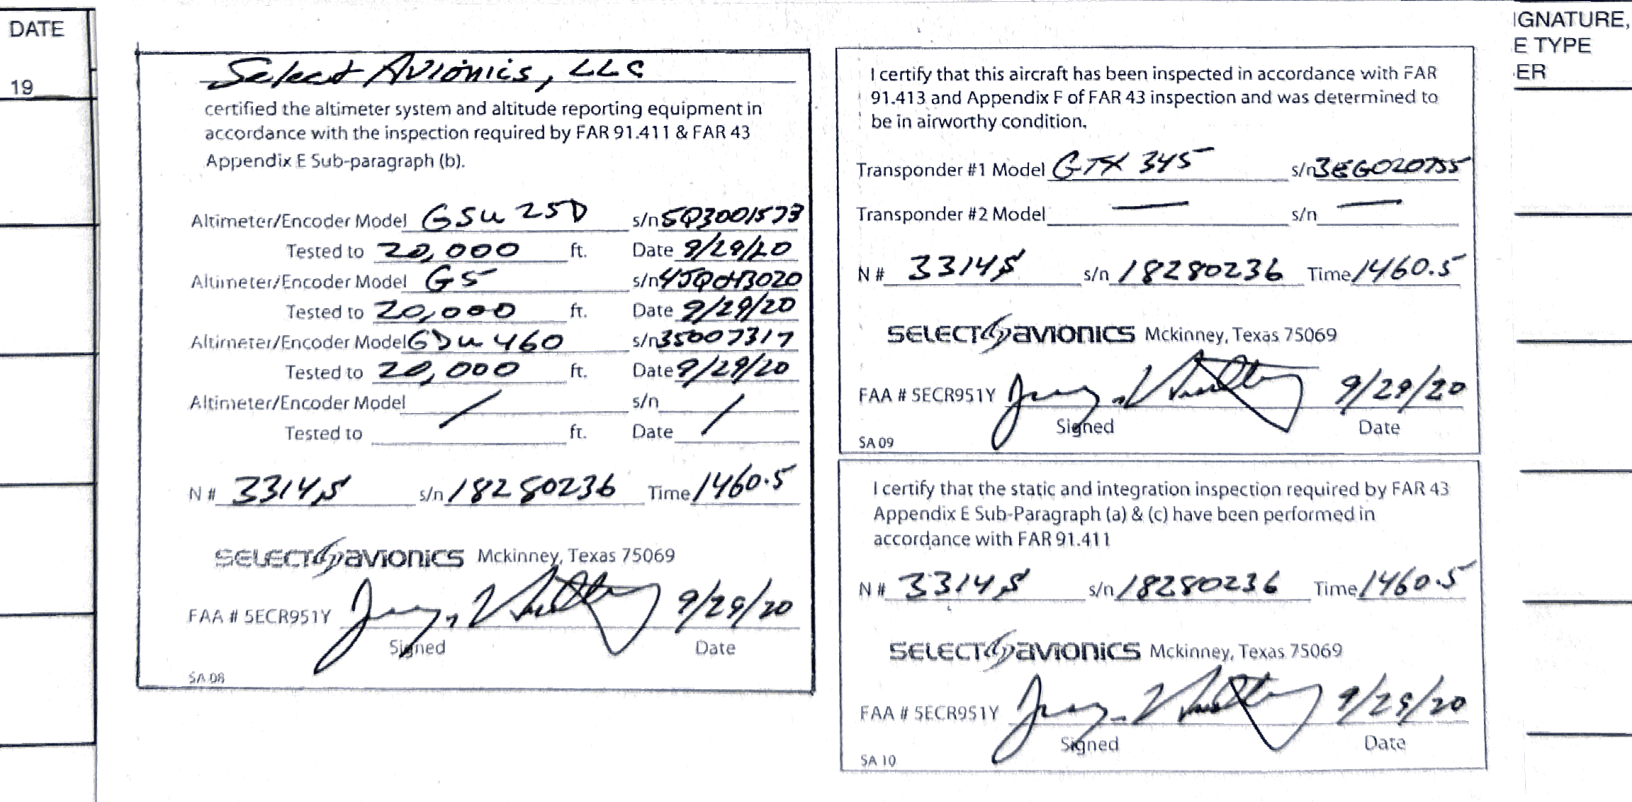 DATE
19
Select Avionics, LLC
certified the altimeter system and altitude reporting equipment in
accordance with the inspection required by FAR 91.411 & FAR 43
Appendix E Sub-paragraph (b).
Altimeter/Encoder Model GSU 25D s/n 5Q3001573
Tested to 20,000 ft. Date 9/29/20
Altimeter/Encoder Model G5 s/n
Tested to 20,000 ft. Date 9/29/20
Altimeter/Encoder Model GDU 460 s/n 35007317
Tested to 20,000 ft. Date 9/29/20
Altimeter/Encoder Model / s/n /
Tested to ft. Date
N # 3314S s/n 18280236 Time 1460.5
SELECT AVIONICS Mckinney, Texas 75069
FAA # 5ECR951Y 9/29/20
Signed Date
SA 08
I certify that this aircraft has been inspected in accordance with FAR
91.413 and Appendix F of FAR 43 inspection and was determined to
be in airworthy condition.
Transponder #1 Model GTX 345 s/n 3EG020755
Transponder #2 Model — s/n —
N # 3314S s/n 18280236 Time 1460.5
SELECT AVIONICS Mckinney, Texas 75069
FAA # 5ECR951Y 9/29/20
Signed Date
SA 09
I certify that the static and integration inspection required by FAR 43
Appendix E Sub-Paragraph (a) & (c) have been performed in
accordance with FAR 91.411
N # 3314S s/n 18280236 Time 1460.5
SELECT AVIONICS Mckinney, Texas 75069
FAA # 5ECR951Y 9/29/20
Signed Date
SA 10
IGNATURE,
E TYPE
ER